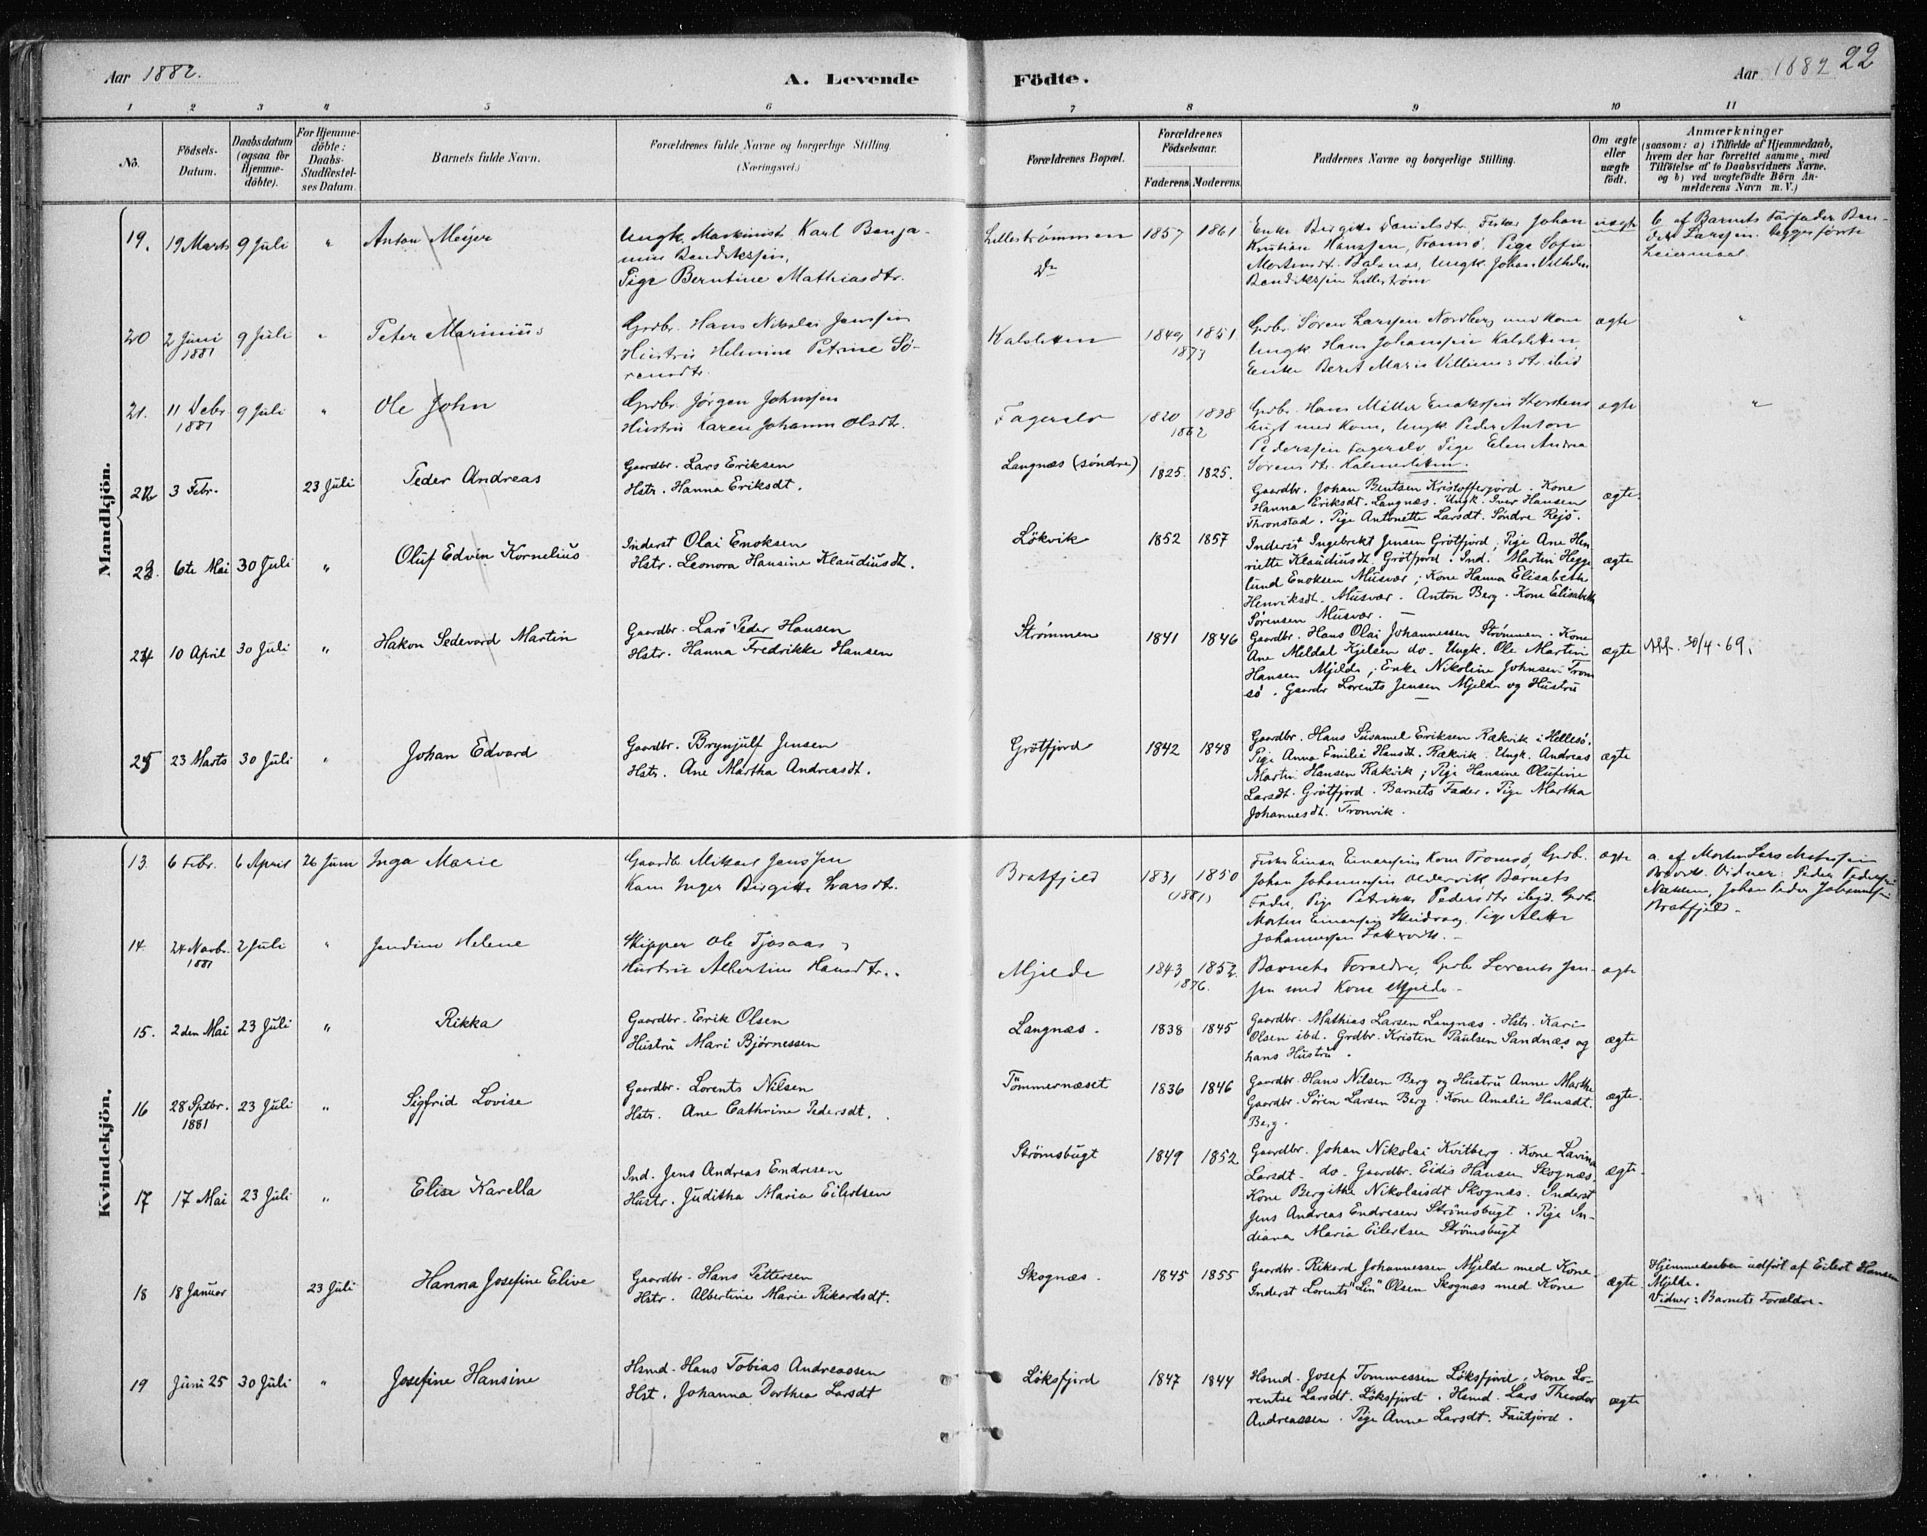 Aar 1882.
A. Levende Födte.
Aar 1882 22
1 2 3 4 5 6 7 8 9 10 11
No.
Födsels-Datum.
Daabsdatum (ogsaa for Hjemme-döbte).
For Hjemme-döbte: Daabs-Stadfæstel-ses Datum.
Barnets fulde Navn.
Forældrenes fulde Navne og borgerlige Stilling.
(Næringsvei.)
Forældrenes Bopæl.
Forældrenes Födselsaar.
Faderens Moderens.
Faddernes Navne og borgerlige Stilling.
Om ægte eller uægte födt.
Anmærkninger
(saasom: a) i Tilfælde af Hjemmedaab,
hvem der har forrettet samme, med
Tilföielse af to Daabsvidners Navne.
og b) ved uægtefödte Börn An-
melderens Navn m. V.)
Mandkjön.
19. 19 Marts 9 Juli " Anton Meyer
Ungk. Maskinist Karl Benja-
min Bendiksen,
Pige Berntine Mathiasdtr.
Lillestrømmen
Do
1857 1861
Enke Birgitte Danielsdt, Fisker Johan
Kristian Hanssen, Tromsø, Pige Sofie
Mortensdt. Balsnes, Ungk. Johan Vilhelm
Bendiksen Lillestrøm
uægte
b. af Barnets Farfader Ben-
dik Larssen. Begges første
Leiermaal.
20 2 Juni 1881 9 Juli " Peter Marinius
Grdbr. Hans Nikolai Jenssen
Hustru Helmine Petrine Sö-
rensdtr.
Kalsletten
1849 1851
1873
Grdbr. Søren Larssen Nordberg med Kone
Ungk. Hans Johanssen Kalsletten,
Enke Berit Marie Villumsdtr. ibid
ægte "
21. 11 Debr 1881 9 Juli " Ole John
Grdbr. Jörgen Johnssen
Hustru Karen Johanna Olsdtr.
Fagerelv
1820 1838
1862
Grdbr. Hans Möller Enokssen Stordens
bugt med Kone, Ungk. Peder Anton
Pederssen Fagerelv, Pige Elen Andrea
Sörensdtr. Kalvesletten.
ægte "
22 3 Febr. 23 Juli Peder Andreas
Gaardbr. Lars Eriksen
Hstr. Hanna Eriksdt.
Langnæs (søndre)
1825. 1825.
Gaardbr. Johan Bentsen Kristofferjord. Kone
Hanna Eriksdt. Langnæs. Ungk. Iver Hansen
Thronstad. Pige Antonette Larsdt. Söndre Rejs.
ægte.
23. 6te Mai 30 Juli " Oluf Edvin Kornelius
Inderst Olai Enoksen
Hstr. Leonora Hansine Klaudiusdt.
Lökvik
1852 1857
Inderst Ingebrekt Jensen Grötfjord; Pige Ane Hen
riette Klaudiusdt. Grötfjord. Ind. Martin Hegge
lund Enoksen Musvær; Kone Hanna Elisabeth
Henriksdt. Musvær. Anton Berg. Kone Elisabeth
Sörensen Musvær.
ægte
24 10 April 30 Juli " Hakon Sedevard Martin
Gaardbr. Lars Peder Hansen
Hstr. Hanna Fredrikke Hansen
Strømmen
1841 1846
Gaardbr. Hans Olai Johannessen Strømmen. Kone
Ane Meldal Kjelsen do. Ungk. Ole Martin
Hansen Mjelde; Enke Nikoline Johnsen Trom
sö. Gaardbr Lorents Jensen Mjelde og Hustru
ægte
Att. 30/4-69.
25 23 Marts 30 Juli " Johan Edvard
Gaardbr. Brynjulf Jensen
Hstr. Ane Martha Andreasdt.
Grötfjord
1842 1848
Gaardbr. Hans Susamel Eriksen Rækvik i Hellesø.
Pige Anna Emilie Hansdt. Rækvik. Ungk. Andreas
Martin Hansen Rakvik; Pige Hansine Olufine
Larsdt. Grötfjord. Barnets Fader. Pige Martha
Johannesdt. Tronvik.
ægte
Kvindekjön.
13. 6 Febr. 6 April 26 Juni Inga Marie
Gaardbr. Mikael Jenssen
Kone Inger Birgitte Larsdt.
Bratfjeld
1831 1850
(1881)
Fisker Einar Einarssens Kone Tromsø, Grdb.
Johan Johannessen Oldervik Barnets
Fader, Pige Petrikke Pedersdtr ibid. Grdb.
Morten Einarssen Skudvag, Pige Alette
Johannessen Lattervik.
ægte
a. af Morten Lars
Vidner: Peder
Johan Peder Johannessen
Bratfjeld.
14. 24 Novb. 1881 2 Juli " Jendine Helene
Skipper Ole Tjosaas
Hustru Albertine Hansdtr.
Mjelde
1843 1852.
1876.
Barnets Forældre, Grdb Lorents Jen-
sen med Kone Mjelde
ægte
15. 2 den Mai 23 Juli " Rikka
Gaardbr. Erik Olsen
Hustru Mari Bjørnessen
Langnæs.
1838 1845
Gaardbr. Mathias Larsen Langnæs. Hstr. Kari
Olsen ibd. Grdbr. Kristen Paulsen Sandnæs og
hans Hustru.
ægte
16 28 Sptbr. 1881 23 Juli " Sigfrid Lovise
Gaardbr. Lorents Nilsen
Hstr. Ane Cathrine Pedersdt.
Tömmernæset
1836 1846
Gaardbr. Hans Nilsen Berg og Hustru Anne Marthe
Gaardbr. Sören Larsen Berg. Kone Amalie Hansdt.
Berg.
ægte.
17 17 Mai 23 Juli " Elise Karella
Ind. Jens Andreas Endresen
Hustr. Juditha Maria Eilertsen
Strömsbugt
1849 1852
Gaardbr. Johan Nikolai Kvitberg. Kone Lavina
Larsdt. do. Gaardbr. Eidis Hansen Skognæs.
Kone Bergitha Nikolaisdt Skognæs. Inderst
Jens Andreas Endresen Strömsbugt. Pige In-
diana Maria Eilertsen Strömsbugt
ægte
18 18 Januar 23 Juli Hanna Josefine Elive
Gaardbr. Hans Pettersen
Hstr. Albertine Marie Rikardsdt.
Skognæs.
1845 1855
Gaardbr. Rikard Johannessen Mjelde med Kone
Inderst Lorents "Lin" Olsen Skognæs med Kone
ægte
Hjemmedaaben udfört af Eilert Hansen
Mjelde.
Vidner: Barnets Forældre.
19 Juni 25 30 Juli " Josefine Hansine
Hsmd. Hans Tobias Andreassen
Hst. Johanna Dorthea Larsdt
Löksfjord
1847 1844
Hsmd. Josef Tommessen Löksfjord; Kone Lo-
rentse Larsdt. Löksfjord. Hsmd. Lars Theodor
Andreassen. Pige Anne Larsdt. Fautfjord.
ægte